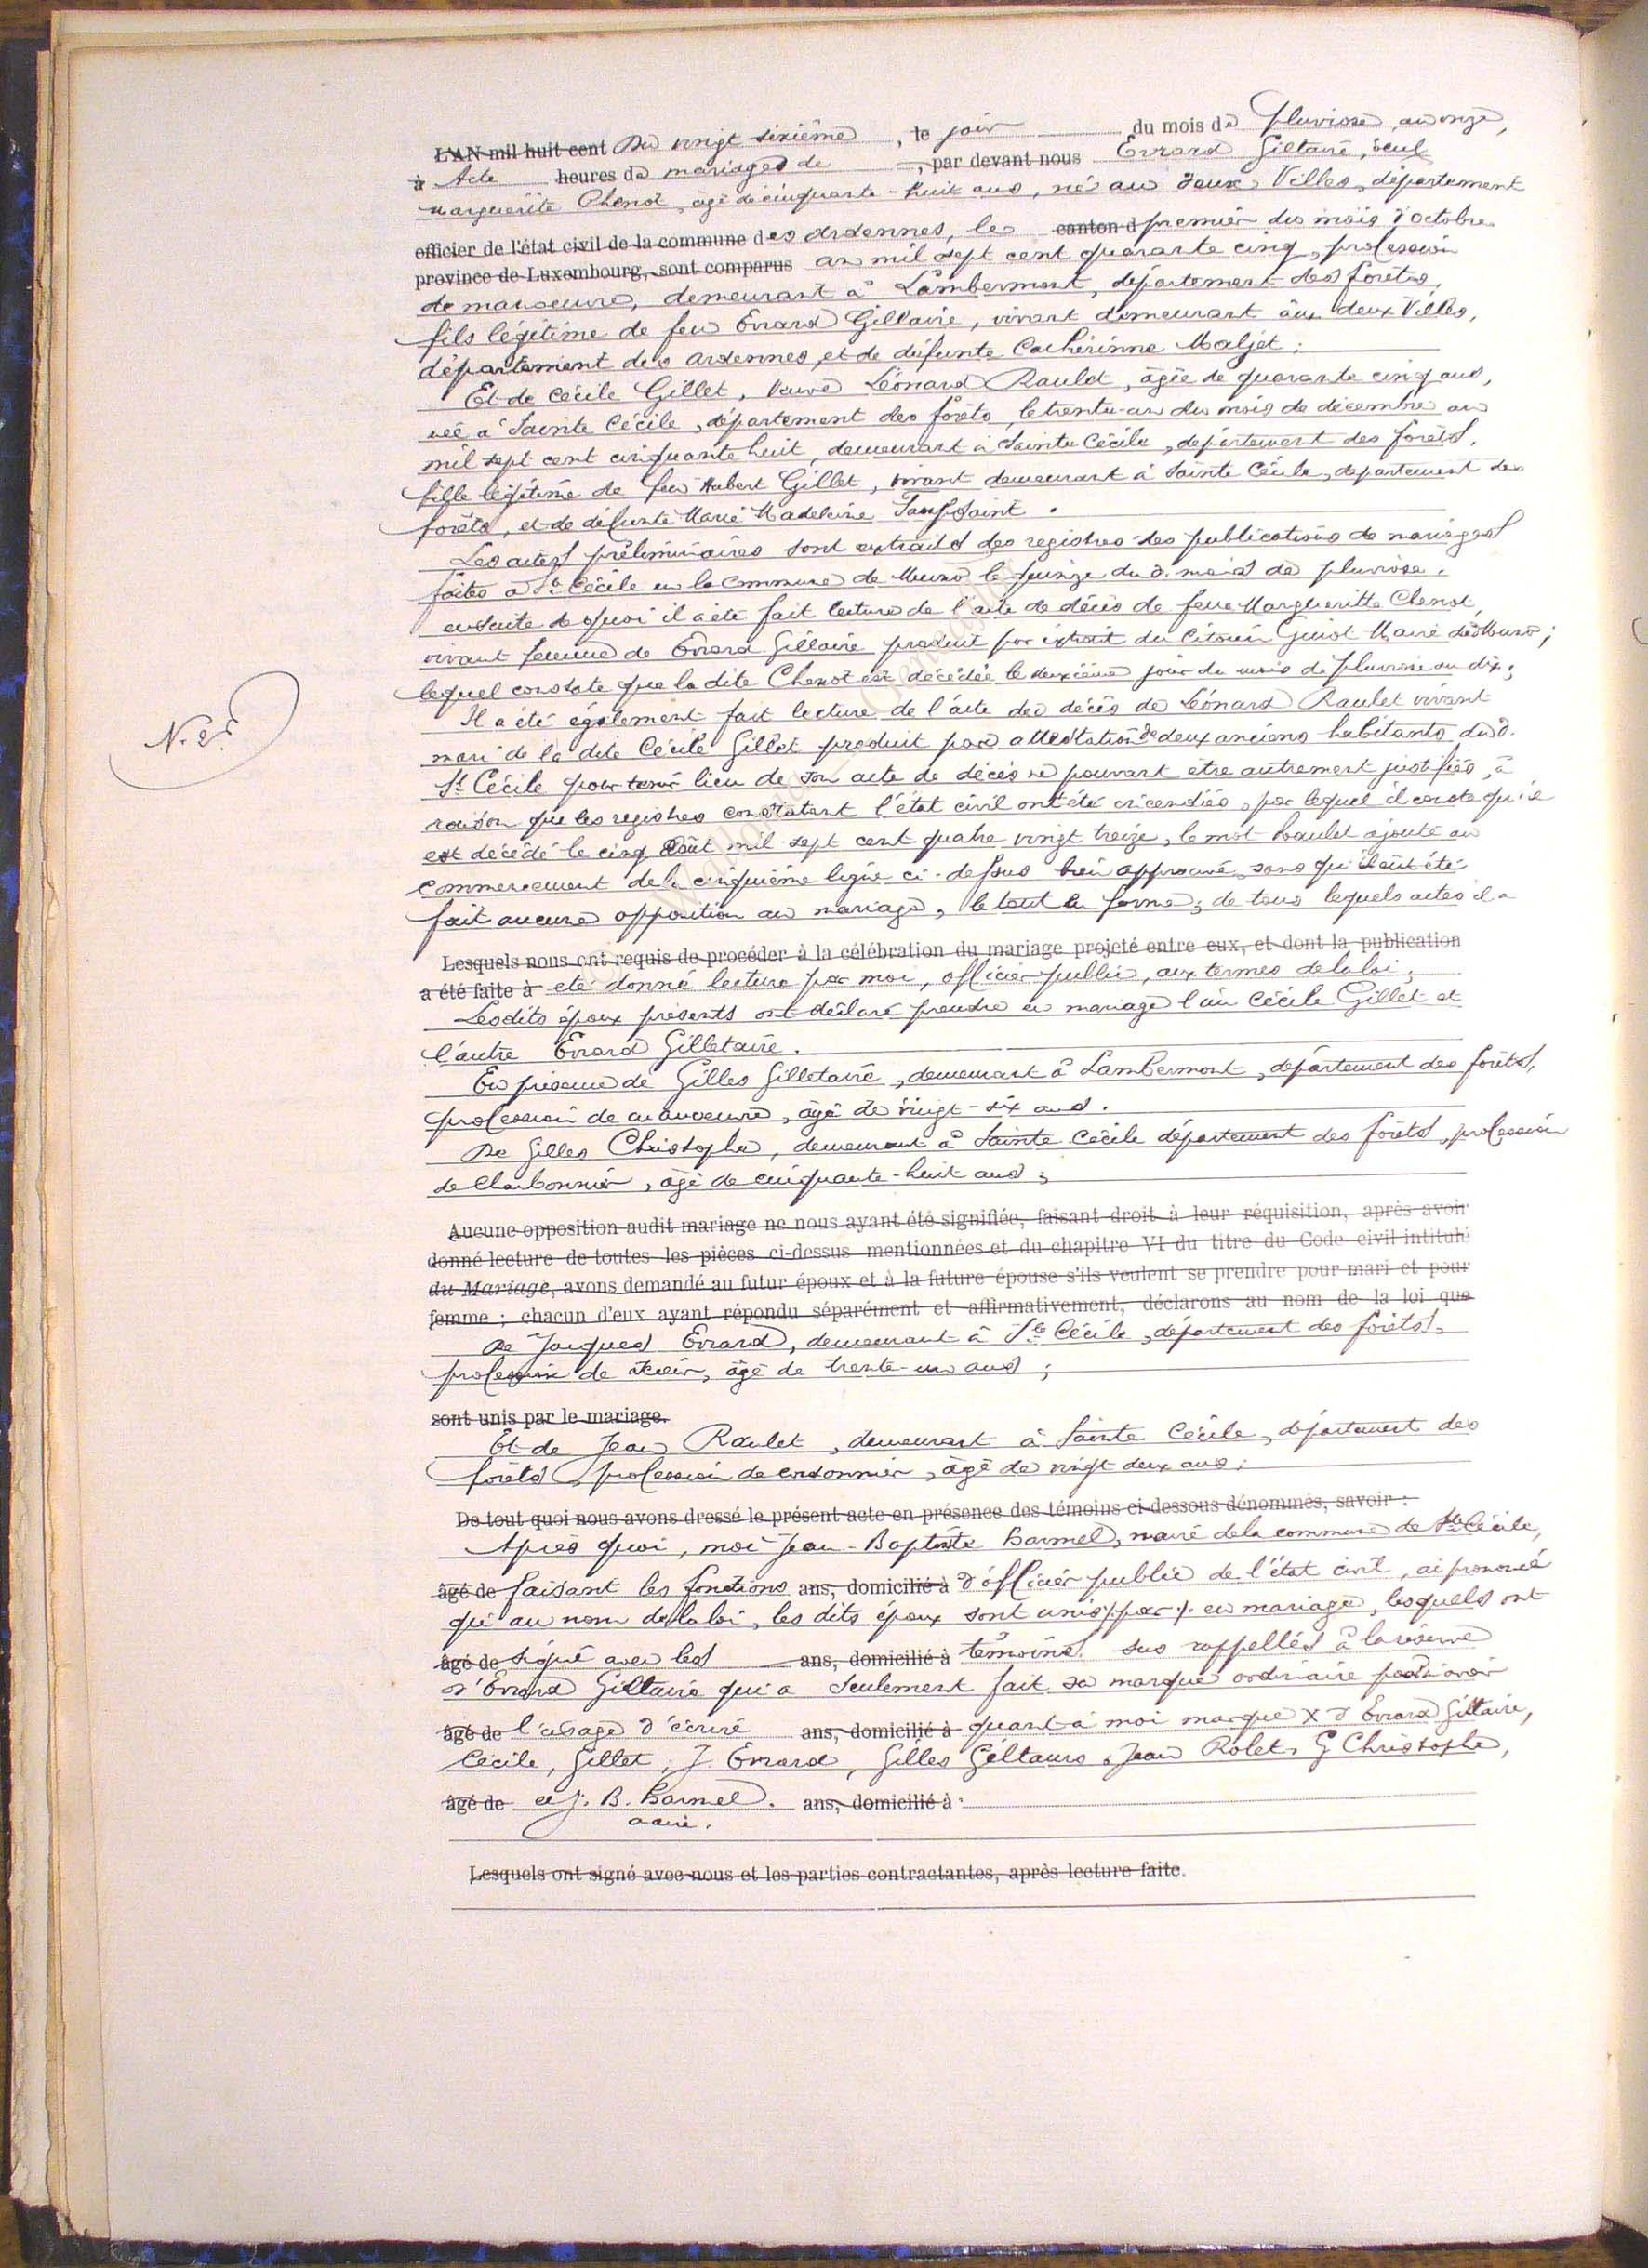 L'AN mil huit cent Du vingt sixième, le jour du mois de pluviose, an onze,
à Acte heures de mariages de, par devant nous Evrard Giltaire, veuf
Marguerite Chenot, âgé de cinquante-huit ans, né au deux Villes, département
officier de l'état civil de la commune des ardennes, le canton d premier du mois d'octobre
province de Luxembourg, sont comparus an mil sept cent quarante cinq, profession
de manoeuvre, demeurant à Lambermont, département des forêts,
fils légitime de feu Evrard Gillaire, vivant demeurant aux deux Villes,
département des ardennes, et de défunte Cathérinne Maljet;
Et de Cécile Gillet, Veuve Léonard Raulet, âgée de quarante cinq ans,
née à Sainte Cécile, département des forêts, le trente-un du mois de décembre an
mil sept cent cinquante huit, demeurant à Sainte Cécile, département des forêts,
fille légitime de feu Hubert Gillet, vivant demeurant à Sainte Cécile, département des
forêts, et de défunte Marie Madeleine Toussaint.
Les actes préliminaires sont extraits des registres des publications de mariages
faites à Ste Cécile en la Commune de Muno le quinze du d. mois de pluviose.
ensuite de quoi il a été fait lecture de l'acte de décès de feue Margueritte Chenot,
vivant femme de Evrard Gillaire produit par extrait du Citoien Guiot Maire de Muno;
lequel constate que la dite Chenot est décédée le deuxième jour du mois de pluviose an dix;
Il a été également fait lecture de l'acte de décès de Léonard Raulet vivant
N. 2
mari de la dite Cécile Gillet produit par attestation de deux anciens habitants dud.
St Cécile pour tenir lieu de son acte de décès ne pouvant être autrement justifiés, à
raison que les registres constatant l'état civil ont été incendiés, par lequel il conste qu'il
est décédé le cinq Août mil sept cent quatre vingt treize, le mot Raulet ajouté au
commencement de la cinquième ligne ci-dessus bien approuvé, sans qu'il eût été
fait aucune opposition au mariage, le tout en forme; de tous lequels actes il a
Lesquels nous ont requis de procéder à la célébration du mariage projeté entre eux, et dont la publication
a été faite à eté donné lecture par moi, officier public, aux termes de la loi;
Lesdits époux présents ont déclaré prendre en mariage l'un Cécile Gillet et
l'autre Evrard Gilletaire.
En présence de Gilles Gilletaire, demeurant à Lambermont, département des forêts,
profession de manoeuvre, âgé de vingt-six ans.
De Gilles Christophe, demeurant à Sainte Cécile département des forêts, profession
de Charbonnier, âgé de cinquante-huit ans;
Aucune opposition audit mariage ne nous ayant été signifiée, faisant droit à leur réquisition, après avoir
donné lecture de toutes les pièces ci-dessus mentionnées et du chapitre VI du titre du Code civil intitulé
du Mariage, avons demandé au futur époux et à la future épouse s'ils veulent se prendre pour mari et pour
femme ; chacun d'eux ayant répondu séparément et affirmativement, déclarons au nom de la loi que
De Jacques Evrard, demeurant à Ste Cécile, département des forêts,
profession de, âgé de trente-un ans;
sont unis par le mariage.
Et de Jean Raulet, demeurant à Sainte Cécile, département des
forêts, profession de cordonnier, âgé de vingt deux ans;
De tout quoi nous avons dressé le présent acte en présence des témoins ci-dessous dénommés, savoir :
Après quoi, moi Jean-Baptiste Harmel, maire de la commune de Ste Cécile,
âgé de faisant les fonctions ans, domicilié à d'officier public de l'état civil, ai prononcé
qu'au nom de la loi, les dits époux sont unis (par) en mariage, lesquels ont
âgé de signé avec les ans, domicilié à témoins sus rappellés à la réserve
d'Evrard Giltaire qui a seulement fait sa marque ordinaire pour n'avoir
âgé de l'usage d'écriré ans, domicilié à quant à moi marque X d'Evrard Giltaire,
Cécile, Gillet, J. Evrard, Gilles Giltaire, Jean Rolet, G Christophe,
âgé de et J. B. Harmel. ans, domicilié à
maire.
Lesquels ont signé avec nous et les parties contractantes, après lecture faite.